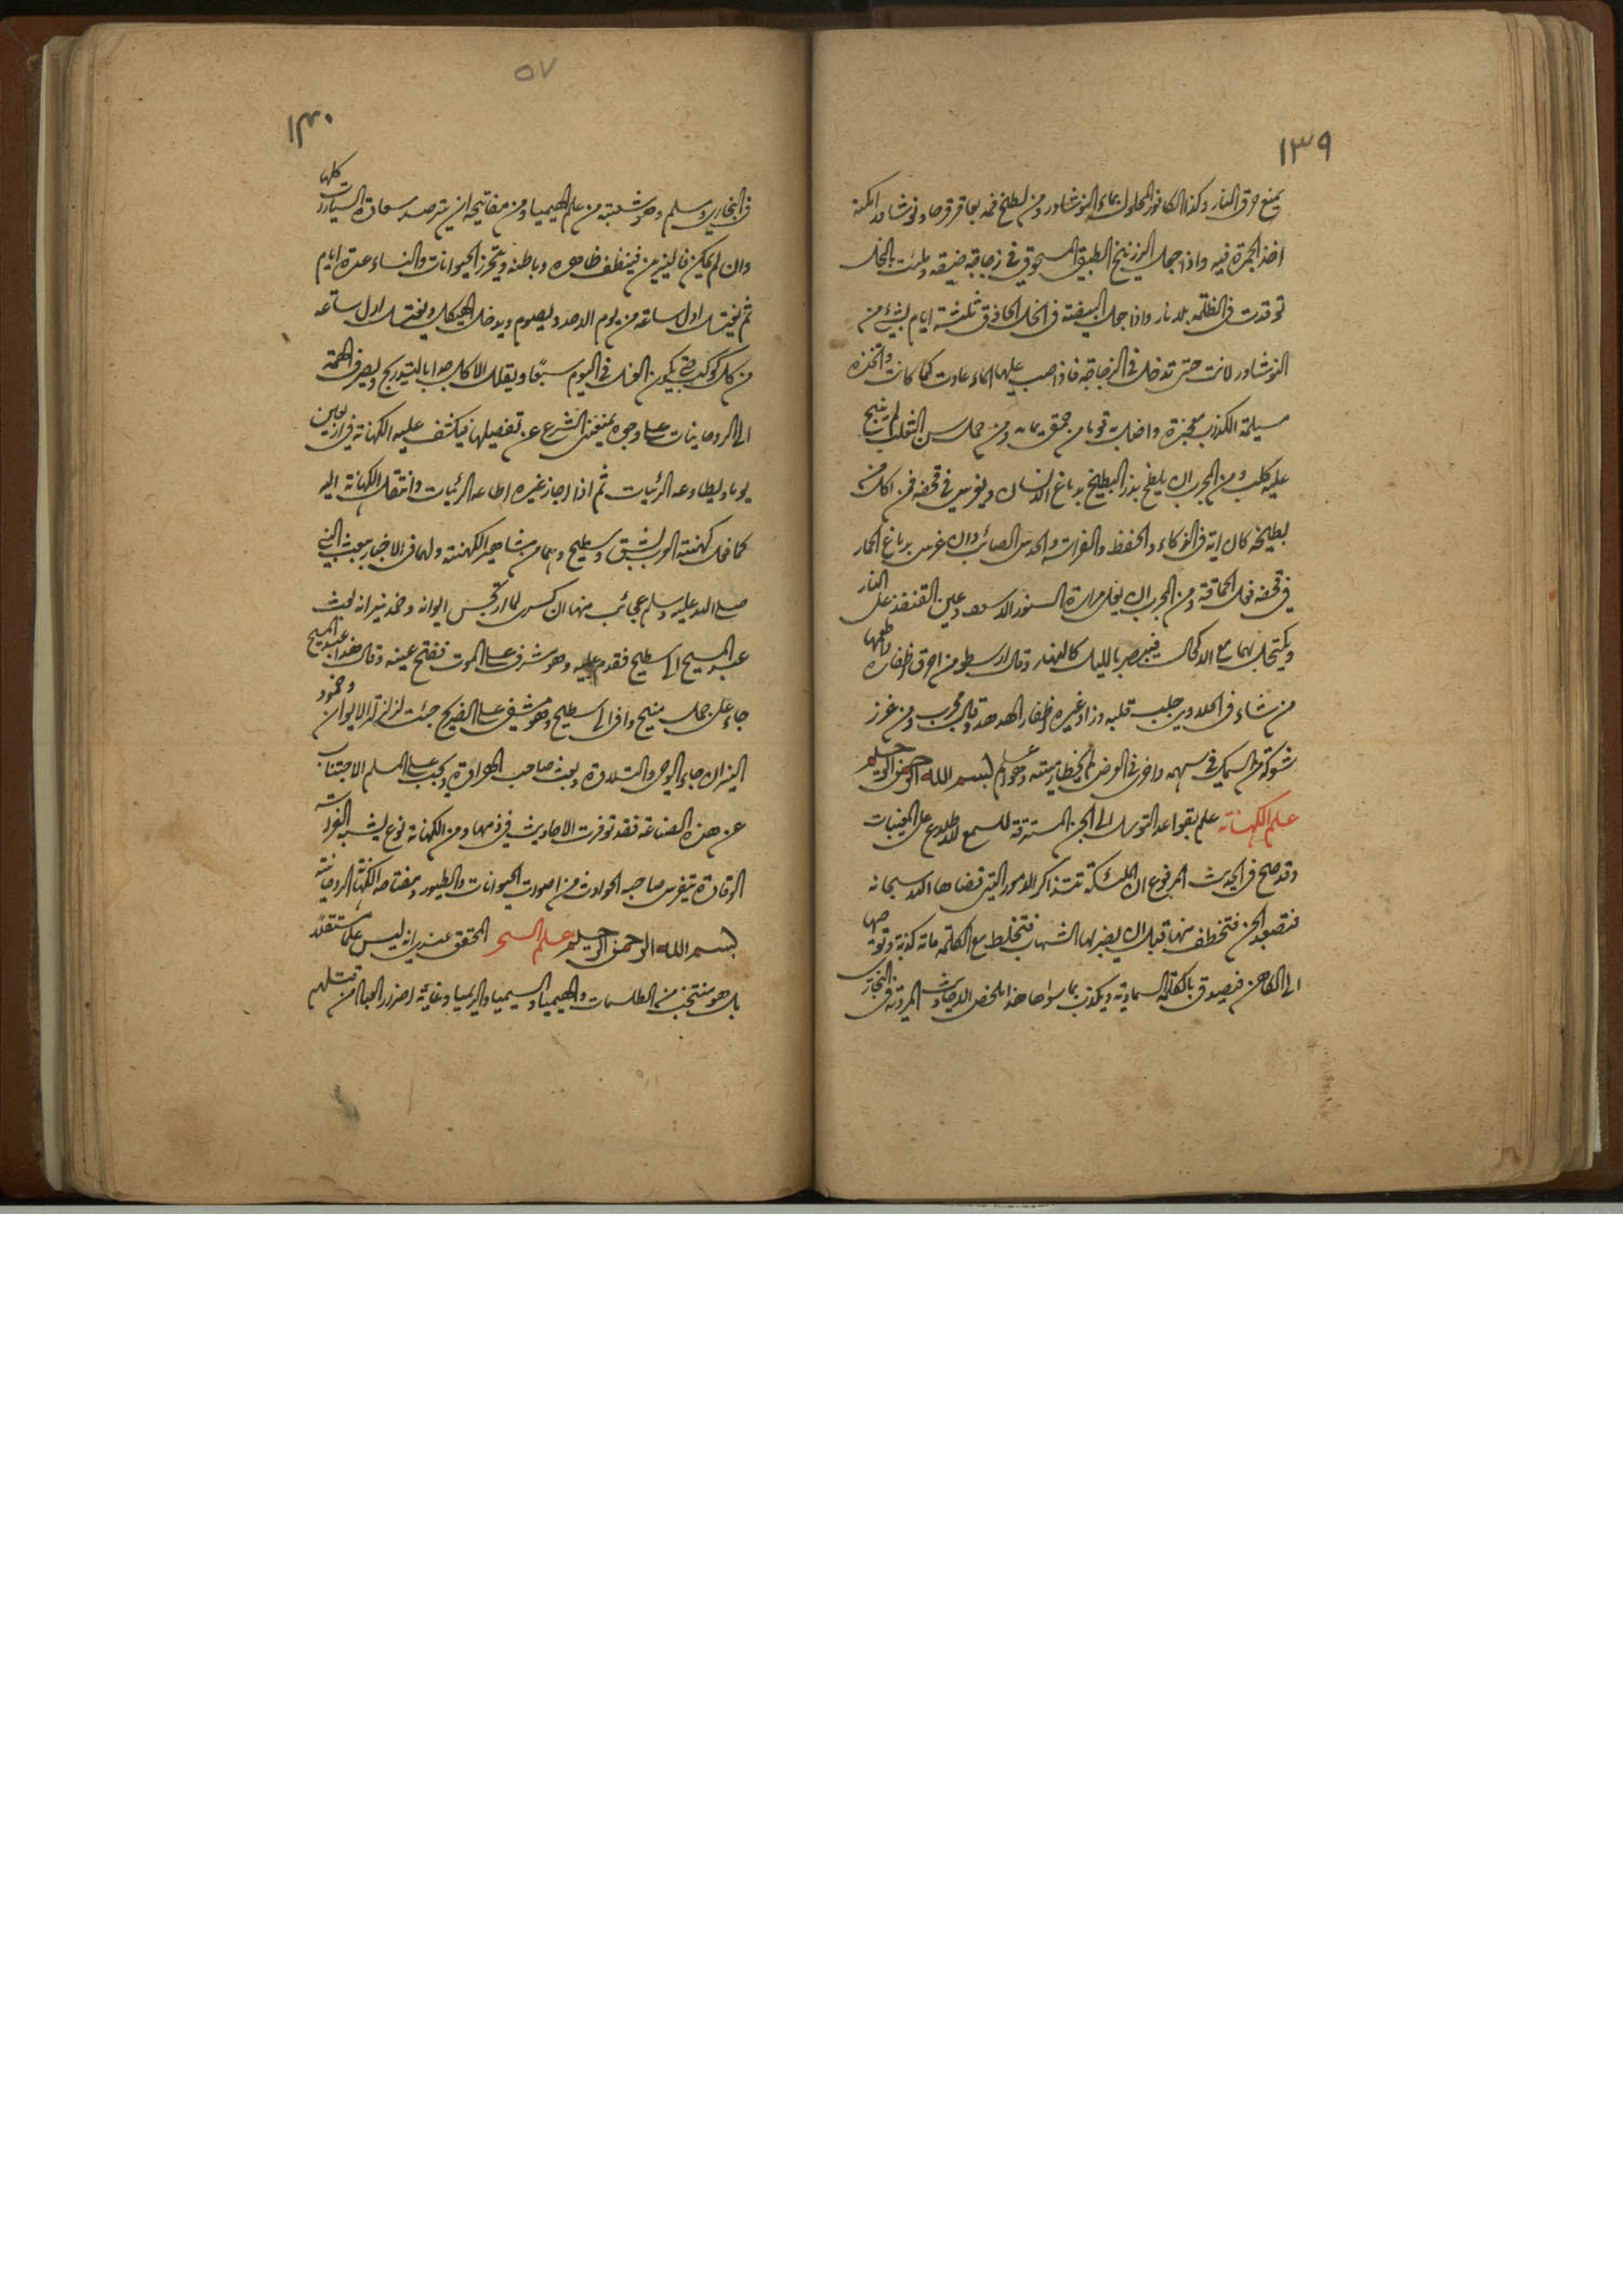 ١٣٩
يمنع حرق النار وكذا الكافور المحلول بماء النوشادر ومن لطخ فمه بعاقرقرحا ونوشادر امكنه
اخذ الجمرة فيه واذا جعل الزرنيخ الطبق المسحوق في زجاجة ضيقة وملئت بالخل
توقدت في الظلمة بلا نار واذا جعل البيضة في الخل الحاذق ثلثة ايام بشئ من
النوشادر لانت حتى تدخل في الزجاجة فاذا صب عليها الماء عادت كما كانت واتخذه
مسيلمة الكذاب معجزة واضل به قوما من حمق يمامة ومن حمل سن الثعلب لم ينبح
عليه كلب ومن المجرب ان يلطخ بذر البطيخ بدماغ الانسان ويغرس في قحفه فمن اكل من
بطيخه كان اية في الذكاء والحفظ والفراسة والحدس الصائب وان غرس بدماغ الحمار
في قحفه فعل الحماقة ومن المجرب ان يغلى مرارة السنور الاسود وعين القنفذ على النار
ويكتحل بهما مع الاكحال فيبصر بالليل كالنهار وقال ارسطو من احرق اظفاره واطعمها
من شاء في الحلاوى جلب قلبه وزاد غيره اظفار الهدهد وقال مجرب ومن غرز
شوكة من السمك في سهمه واخرى في الغرض لم يخطأ رميته وهو ام بسم الله الرحمن الرحيم
علم الكهانة علم بقواعد التوسل الى الجن المسترقة للسمع للاطلاع على المغيبات
وقد صح في الحديث المرفوع ان الملئكة تتذاكر الامور التي قضاها الله سبحانه
فتصعد الجن فتخطف منها قبل ان يضربها الشهاب فتخلط مع الكلمة مائة كذبة وتوحيها
الى الكاهن فيصدق بالكلمة السماوية ويكذب بما سواها هذا ملخص الاحاديث المروية في البخاري
٥٧
١٤٠
في البخاري ومسلم وهو شعبة من علم الهيميا ومن مفاتيحه ان يترصد سعادة السيارات كلها
وان لم يكن فالنيرين فينظف ظاهره وباطنه ويتحرز الحيوانات والنساء عدة ايام
ثم يغتسل اول ساعة من يوم الاحد ويصوم ويدخل الهيكل ويغتسل اول ساعة
من كل كوكب حتى يكون الغسل في اليوم سبعا ويقلل الاكل جدا بالتدريج ويصرف الهمة
الى الروحانيات على وجوه يمنعنى الشرع عن تفصيلها فيكشف عليه الكهانة في اربعين
يوما ويطاوعه الرئيات ثم اذا اجاز غيره اطاعه الرئيات وانتقل الكهانة اليه
كما فعل كهنة العرب لشق وسطيح وهما من مشاهير الكهنة ولهما في الاخبار بمبعث النبي
صلى الله عليه وسلم عجائب منها ان كسرى لما ارتجس ايوانه وخمد نيرانه بعث
عبد المسيح الى سطيح فقدم عليه وهو مشرف على الموت ففتح عينه وقال هذا عبد المسيح
جاء على جمل مشيح وافى الى سطيح وهو مشفى على الضريح جئت لزلزلة الايوان وخمود
النيران جاء الوحى والتلاوة وبعث صاحب الهراوة ويجب على المسلم الاجتناب
عن هذه الصناعة فقد توفرت الاحاديث في ذمها ومن الكهانة نوع يشبه الفراسة
الوقادة يتفرس صاحبه الحوادث من اصوات الحيوانات والطيور ومفتاحه الكهانة الروحانية
بسم الله الرحمن الرحيم علم السحر المحقق عندى انه ليس علما مستقلا
بل هو منتخب من الطلسمات والهيميا والسيميا والريميا وغايته اضرار العباد من قتلهم